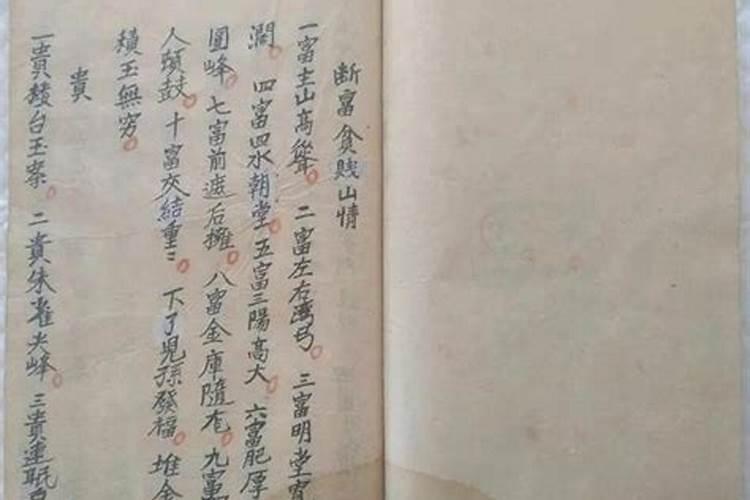 断富貪贱山情
一富主山高聳。二富左右湾弓。三富明堂寬
濶。四富四水朝堂。五富三陽高大。六富肥厚
圓峰。七富前遮后擁。八富金庫隨
九富
人頭鼓。十富交結重〻。下了児孫發福。堆金
積玉無穷。
貴
一貴楼台玉案。二貴朱雀尖峰。三貴連